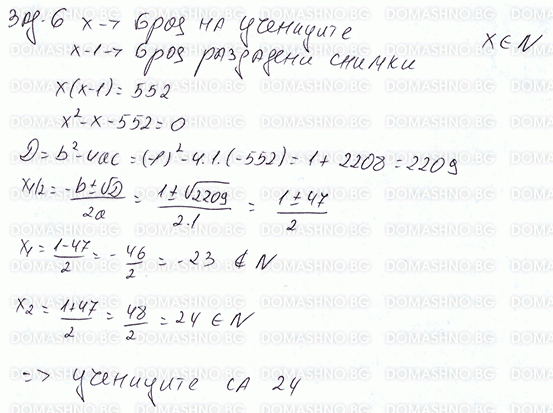 Зад. 6 x → брой на учениците
x-1 → брой раздадени снимки x ∈ N
x(x-1) = 552
x² - x - 552 = 0
D = b² - 4ac = (-1)² - 4.1.(-552) = 1 + 2208 = 2209
x1/2 = (-b ± √D)/2a = (1 ± √2209)/2.1 = (1 ± 47)/2
x₁ = (1-47)/2 = - 46/2 = -23 ∉ N
x₂ = (1+47)/2 = 48/2 = 24 ∈ N
=> учениците са 24